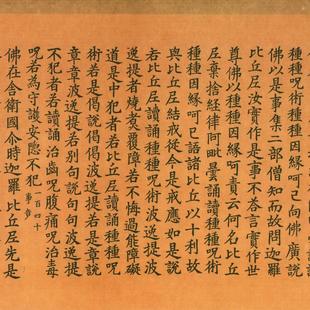 種種呪術種種因緣呵已向佛廣說
佛以是事集二部僧知而故問迦羅
比丘尼汝實作是事不荅言實作世
尊佛以種種因緣呵責云何名比丘
尼棄捨經律阿毗曇誦讀種種呪術
種種因緣呵已語諸比丘以十利故
與比丘尼結戒從今是戒應如是說
若比丘尼讀誦種種呪術波逸提波
逸提者燒煮覆障若不悔過能障礙
道是中犯者若比丘尼讀誦種種呪
術若是偈說偈偈波逸提若是章說
章章波逸提若別句說句句波逸提
不犯者若讀誦治齒呪腹痛呪治毒
呪若為守護安隱不犯一百四十事竟
佛在舍衛國尒時迦羅比丘尼先是